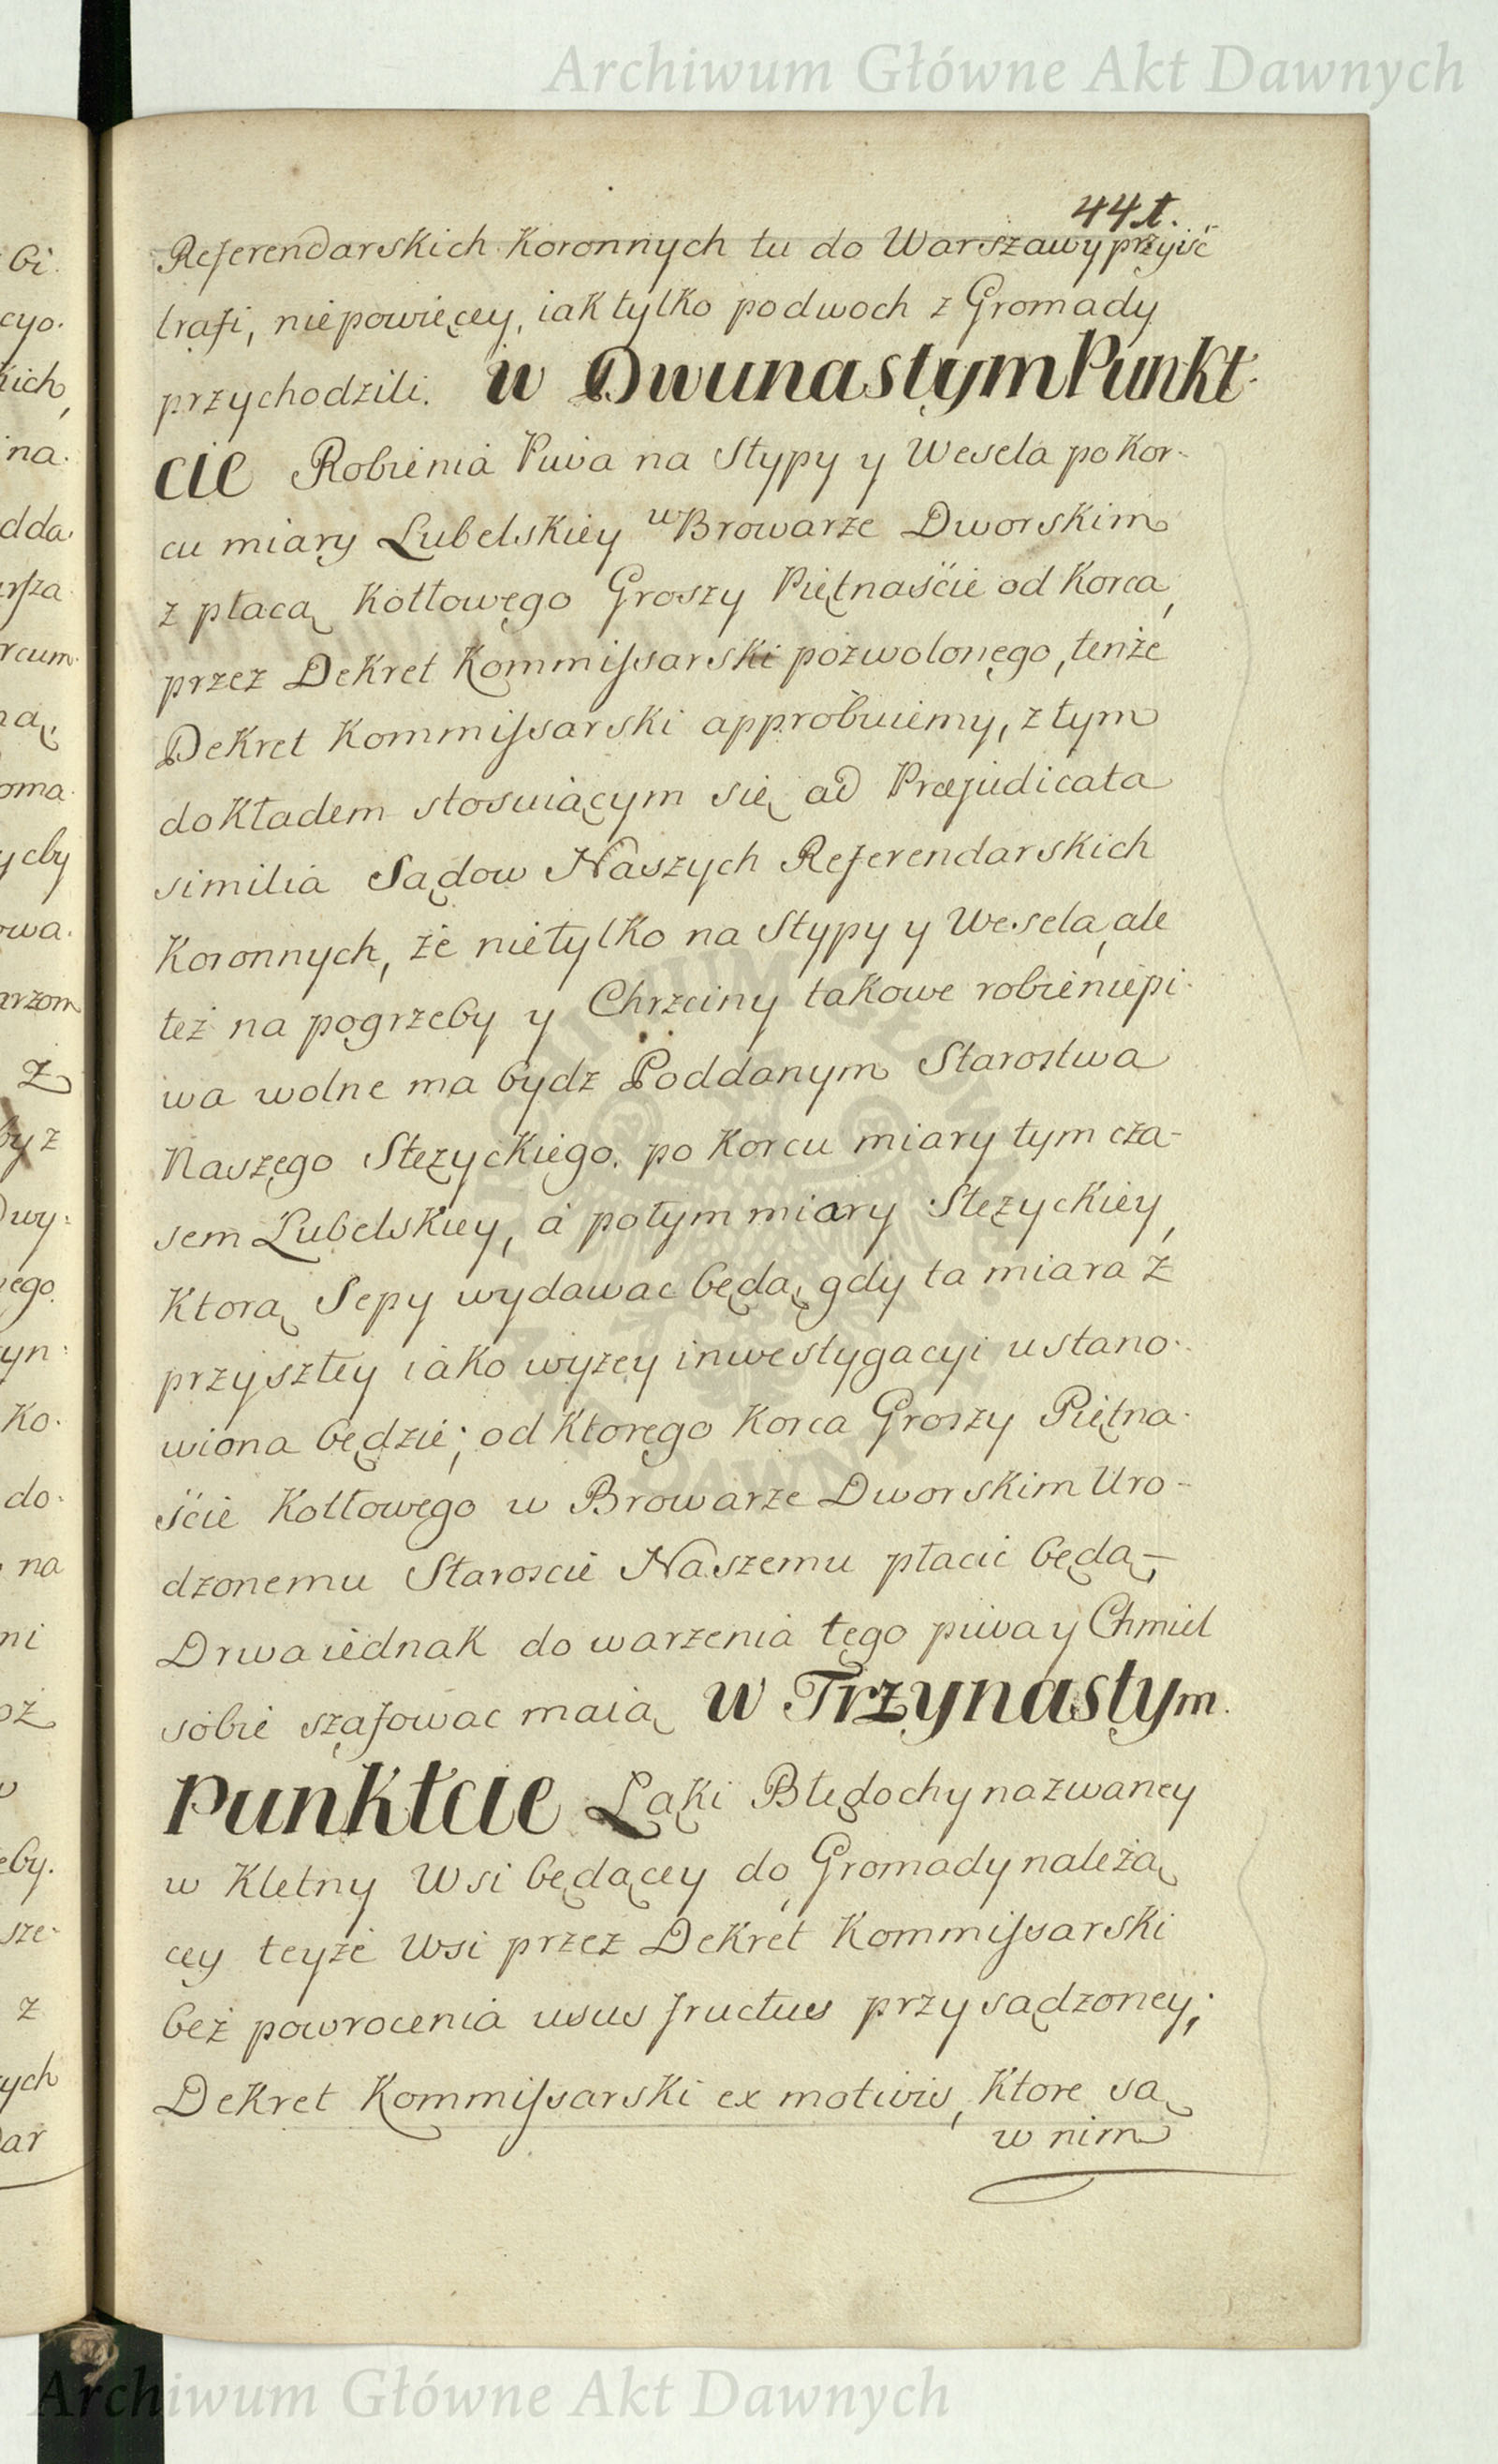 Archiwum Główne Akt Dawnych
441.
Referendarskich Koronnych tu do Warszawy przyiść
trafi, niepowięcey, iak tylko podwoch z Gromady
przychodzili. w Dwunastym Punkt-
cie Robienia Piwa na Stypy y Wesela po Kor-
cu miary Lubelskiey w Browarze Dworskim
z płacą Kotłowego Groszy Piętnaście od Korca,
przez Dekret Kommissarski pozwolonego, tenże
Dekret Kommissarski approbuiemy, z tym
dokładem stosuiącym się ad Præjudicata
similia Sądow Naszych Referendarskich
Koronnych, że nietylko na Stypy y Wesela, ale
też na pogrzeby y Chrzciny takowe robieniepi-
wa wolne ma bydz Poddanym Starostwa
Naszego Stezyckiego. po Korcu miary tym cza-
sem Lubelskiey, a potym miary Stezyckiey,
Ktorą Sepy wydawac będą, gdy ta miara z
przyszłey iako wyzey inwestygacyi ustano-
wiona będzie; od Ktorego Korca Groszy Piętna-
ście Kotłowego w Browarze Dworskim Uro-
dzonemu Staroscie Naszemu płacic będą,—
Drwa iednak do warzenia tego piwa y Chmiel
sobie szafowac maią w Trzynastym
Punktcie Łąki Błędochy nazwaney
w Kletny Wsi będącey do Gromady należą
cey teyże Wsi przez Dekret Kommissarski
bez powrocenia usus fructus przysądzoney;
Dekret Kommissarski ex motivis, Ktore są
w nim
Archiwum Główne Akt Dawnych